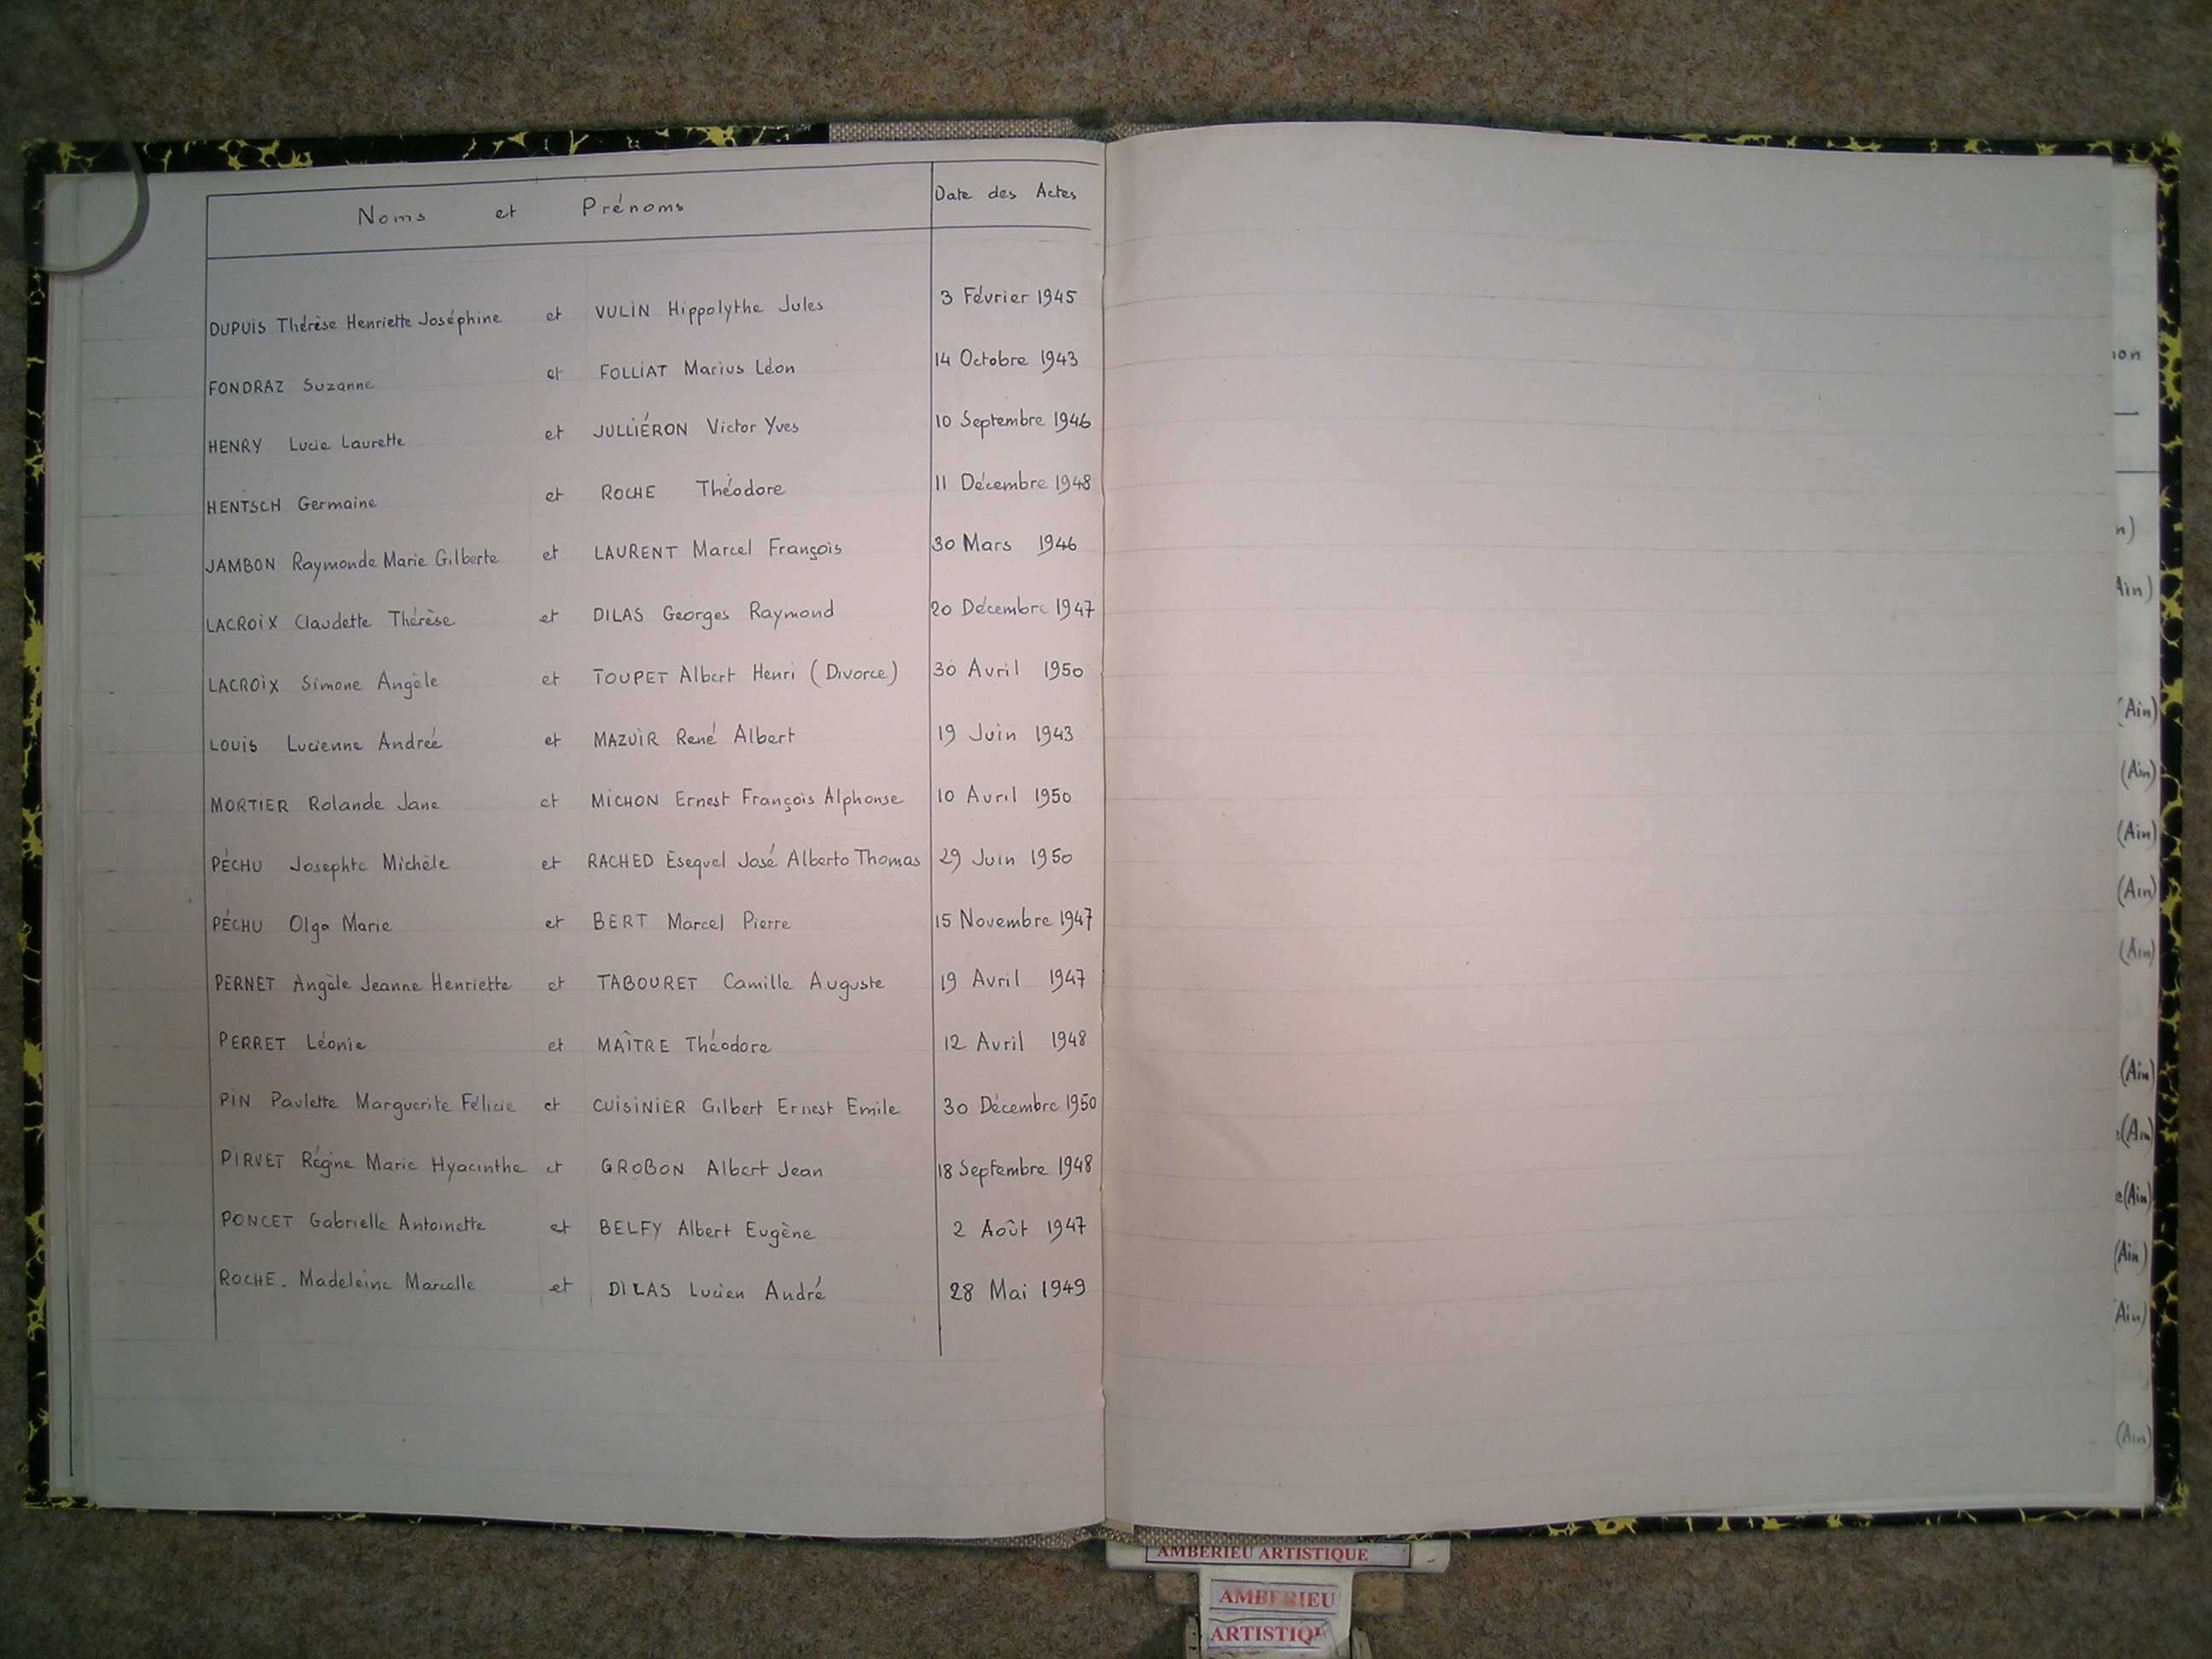 Noms et Prénoms Date des Actes
DUPUIS Thérèse Henriette Joséphine et VULIN Hippolythe Jules 3 Février 1945
FONDRAZ Suzanne et FOLLIAT Marius Léon 14 Octobre 1943
HENRY Lucie Laurette et JULLIÉRON Victor Yves 10 Septembre 1946
HENTSCH Germaine et ROCHE Théodore 11 Décembre 1948
JAMBON Raymonde Marie Gilberte et LAURENT Marcel François 30 Mars 1946
LACROIX Claudette Thérèse et DILAS Georges Raymond 20 Décembre 1947
LACROIX Simone Angèle et TOUPET Albert Henri (Divorce) 30 Avril 1950
LOUIS Lucienne Andreé et MAZUIR René Albert 19 Juin 1943
MORTIER Rolande Jane et MICHON Ernest François Alphonse 10 Avril 1950
PÉCHU Josephte Michèle et RACHED Esequel José Alberto Thomas 29 Juin 1950
PÉCHU Olga Marie et BERT Marcel Pierre 15 Novembre 1947
PERNET Angèle Jeanne Henriette et TABOURET Camille Auguste 19 Avril 1947
PERRET Léonie et MAÎTRE Théodore 12 Avril 1948
PIN Paulette Marguerite Félicie et CUISINIER Gilbert Ernest Emile 30 Décembre 1950
PIRVET Régine Marie Hyacinthe et GROBON Albert Jean 18 Septembre 1948
PONCET Gabrielle Antoinette et BELFY Albert Eugène 2 Août 1947
ROCHE. Madeleine Marcelle et DILAS Lucien André 28 Mai 1949
on
n)
Ain)
(Ain)
(Ain)
(Ain)
(Ain)
(Ain)
(Ain)
(Ain)
e(Ain)
(Ain)
Ain)
(Ain)
AMBERIEU ARTISTIQUE
AMBERIEU
ARTISTIQU